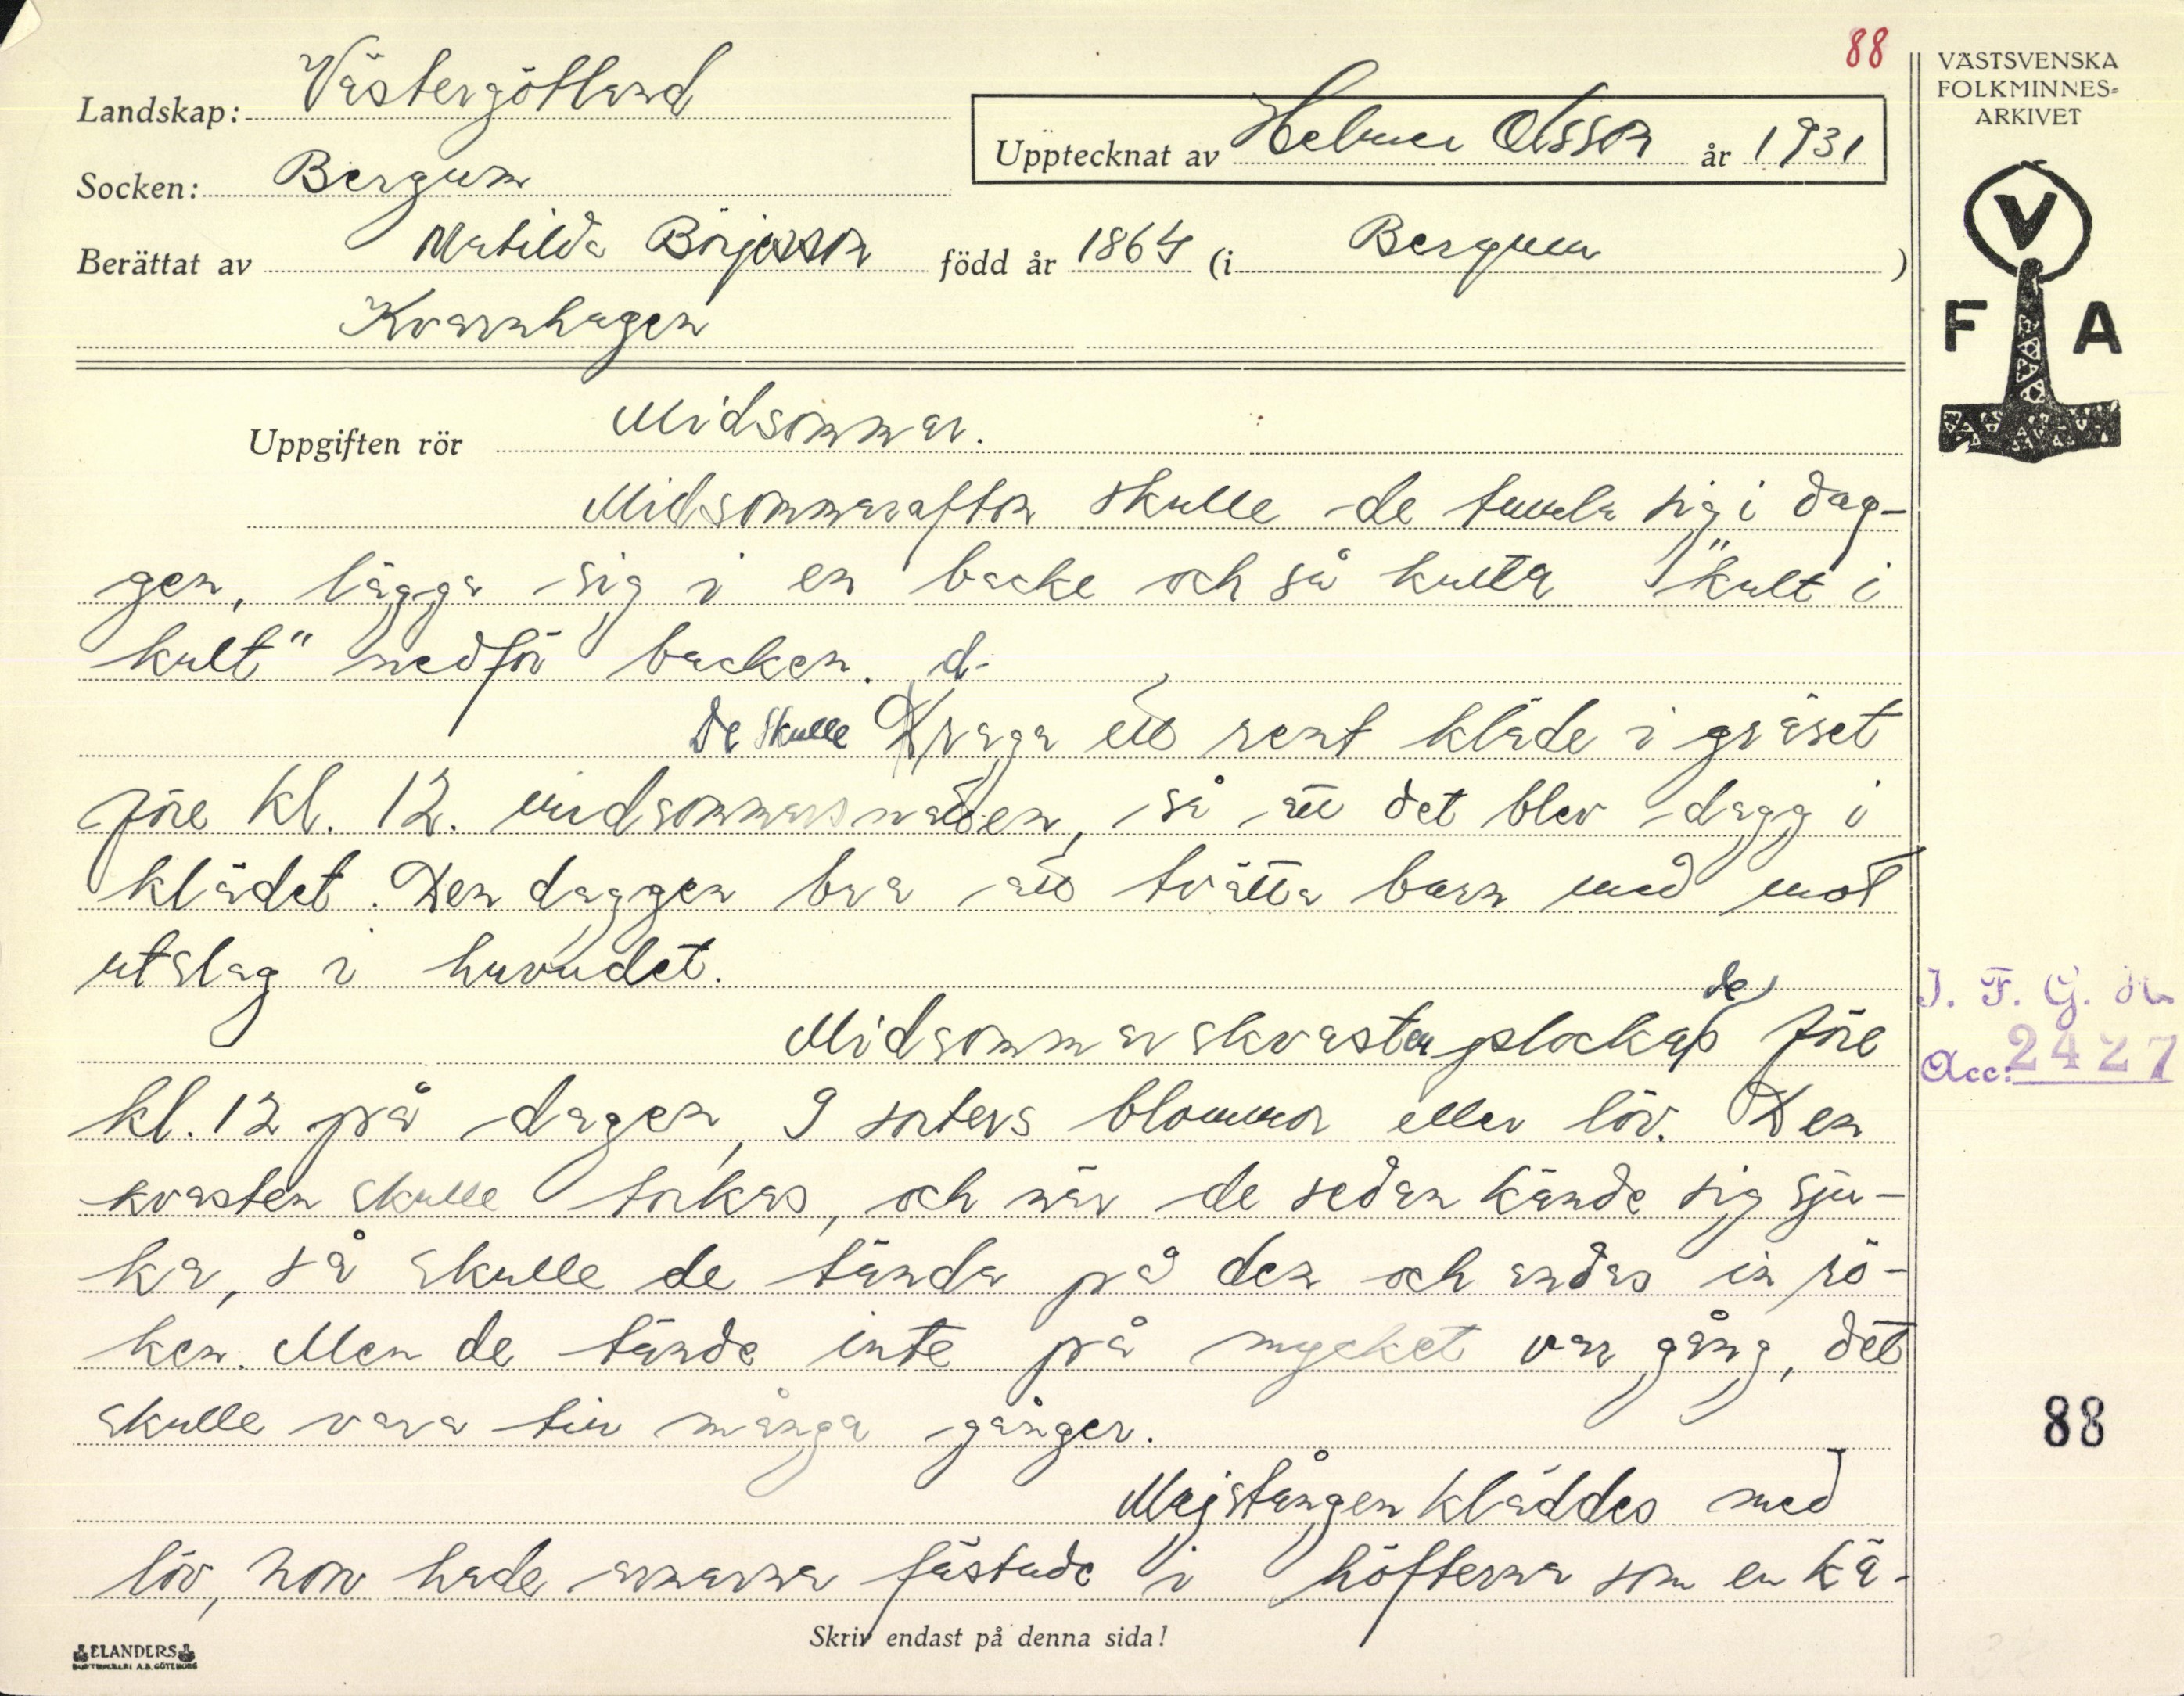 88
VÄSTSVENSKA
FOLKMINNES=
ARKIVET
Landskap: Västergötland
Upptecknat av Helmer Olsson år 1931
Socken: Bergum
Berättat av Matilda Börjesson född år 1864 (i Bergum )
Kvarnhagen
V
F A
Uppgiften rör Midsommar.
Midsommarafton skulle de tumla sig i dag-
gen, lägga sig i en backe och så kulta "kult i
kult" nedför backen. d-
De skulle Draga ett rent kläde i gräset
före kl. 12. midsommarsnatten, så att det blev dagg i
klädet. Den daggen bra att tvätta barn med mot
utslag i huvudet.
de
Midsommarskvasten plockas före
kl. 12 på dagen, 9 sorters blommor eller löv. Den
kvasten skulle torkas, och när de sedan kände sig sju-
ka, så skulle de tända på den och andas in rö-
ken. Men de tände inte på mycket var gång, det
skulle vara till många gånger.
Majstången kläddes med
löv, hon hade armarna fästade i höfterna som en kä-
J. F. G. H.
Acc: 2427
88
Skriv endast på denna sida!
ELANDERS
BOKTRYCKERI A.B. GÖTEBORG